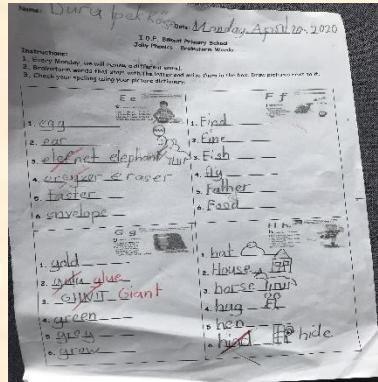 Name: Duru İpek Koş Date: Monday, April 20, 2020
I.O.F. Bilkent Primary School
Jolly Phonics - Brainstorm Words
Instructions:
1. Every Monday, we will revise 4 different sounds.
2. Brainstorm words that start with the letter and write them in the box. Draw pictures next to it.
3. Check your spelling using your picture dictionary.
E e
1. egg
2. ear
3. elefnet elephant
4. ereyzer eraser
5. faster
6. envelope
F f
1. Find
2. Fine
3. Fish
4. fly
5. Father
6. Food
G g
1. gold
2. glue
3. Giant
4. green
5. grey
6. grow
H h
1. hat
2. House
3. horse
4. hug
5. hen
6. hide